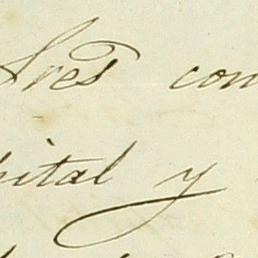 Sres com
pital y